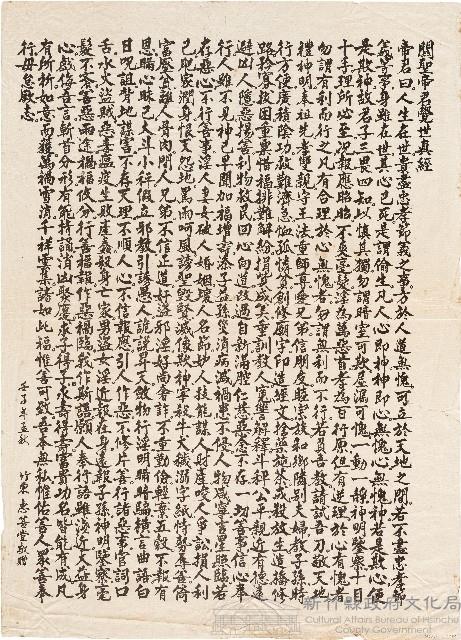 關聖帝君覺世真經
帝君曰人生在世貴盡忠孝節義之事方於人道無愧可立於天地之間若不盡忠孝節
義等事身雖在世其心已死是謂偷生凡人心即神神即心無愧心無愧神若是欺心便
是欺神故君子三畏四知以慎其獨勿謂暗室可欺屋漏可愧一動一靜神明鑒察十目
十手理所必至況報應昭昭不爽毫髮淫為萬惡首孝為百行原但有逆理於心有愧者
勿謂有利而行之凡有合理於心無愧者勿謂無利而不行若負吾教請試吾刀敬天地
禮神明奉祖先孝雙親守王法重師尊愛兄弟信朋友睦宗族和鄉隣別夫婦教子孫時
行方便廣積陰功救難濟急恤孤憐貧創修廟宇印造經文捨藥施茶戒殺放生造橋修
路矜寡拔困重粟惜福排難解紛捐貲成美垂訓教人冤讐解釋斗秤公平親近有德遠
避凶人隱惡揚善利物救民回心向道改過自新滿腔仁慈惡念不存一切善事信心奉
行人雖不見神已早聞加福增壽添子益孫災消病減禍患不侵人物咸寧吉星照臨若
存惡心不行善事淫人妻女破人婚姻壞人名節妒人技能謀人財產唆人爭訟損人利
己肥家潤身恨天怨地罵雨呵風謗聖毀賢滅像欺神宰殺牛犬穢溺字紙恃勢辱善倚
富壓貧離人骨肉間人兄弟不信正道奸盜邪淫好尚奢詐不重勤儉輕棄五穀不報有
恩瞞心昧己大斗小秤假立邪教引誘愚人詭說昇天斂物行淫明瞞暗騙橫言曲語白
日咒詛背地謀害不存天理不順人心不信報應引人作惡不修片善行諸惡事官詞口
舌水火盜賊惡毒瘟疫生敗產蠢殺身亡家男盜女淫近報在身遠報子孫神明鑒察毫
髮不紊善惡兩途禍福攸分行善福報作惡禍臨我作斯語願人奉行語雖淺近大益身
心戲侮吾言斬首分形有能持誦消凶聚慶求子得子求壽得壽富貴功名皆能有成凡
有所祈如意而獲萬禍雪消千祥雲集諸如此福惟善可致吾本無私惟佑善人眾善奉
行毋怠厥志
壬子年孟秋 竹東惠堂敬贈
新竹縣政府文化局
Cultural Affairs Bureau of Hsinchu County Government